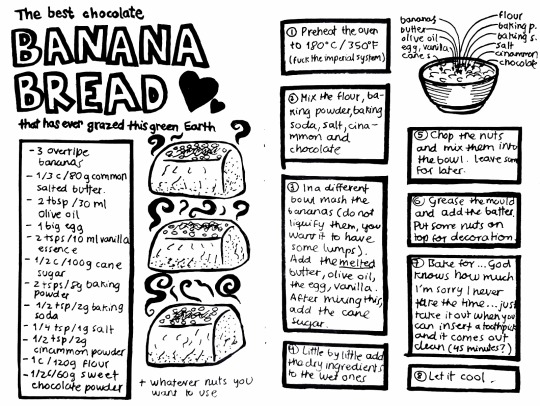 The best chocolate
BANANA
BREAD
that has ever grazed this green Earth
- 3 overripe
bananas
- 1/3 c/80g common
salted butter.
- 2 tbsp/30 ml
olive oil
- 1 big egg
- 2 tsps/10 ml vanilla
essence
- 1/2 c/100g cane
sugar
- 2 tsps/8g baking
powder
- 1/2 tsp/2g baking
soda
- 1/4 tsp/1g salt
- 1/2 tsp/2g
cinammon powder
- 1 c/120g flour
- 1/2c/60g sweet
chocolate powder
+ whatever nuts you
want to use
① Preheat the oven
to 180°C/350°F
(fuck the imperial system)
② Mix the flour, ba-
king powder, baking
soda, salt, cina-
mmon and
chocolate
③ In a different
bowl mash the
bananas (do not
liquify them, you
want it to have
some lumps).
Add the melted
butter, olive oil,
the egg, vanilla.
After mixing this,
add the cane
sugar.
④ Little by little add
the dry ingredients
to the wet ones
bananas
butter
olive oil
egg, vanilla
cane s.
flour
baking p.
baking s.
salt
cinammon
chocolate
⑤ Chop the nuts
and mix them into
the bowl. Leave some
for later.
⑥ Grease the mould
and add the batter.
Put some nuts on
top for decoration
⑦ Bake for... God
knows how much
I'm sorry I never
take the time... just
take it out when you
can insert a toothpick
and it comes out
clean (45 minutes?)
⑧ Let it cool.